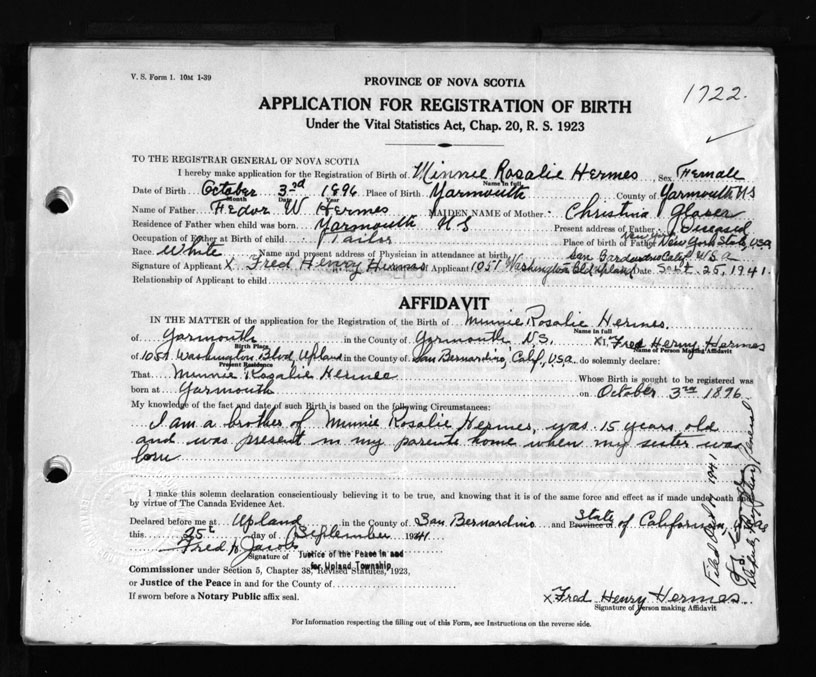 V. S. Form 1. 10M 1-39
1722.
PROVINCE OF NOVA SCOTIA
APPLICATION FOR REGISTRATION OF BIRTH
Under the Vital Statistics Act, Chap. 20, R. S. 1923
TO THE REGISTRAR GENERAL OF NOVA SCOTIA
I hereby make application for the Registration of Birth of Minnie Rosalie Hermes Sex Female
Name in full
Date of Birth October 3rd 1896 Place of Birth Yarmouth County of Yarmouth NS
Month Date Year
Name of Father Fedor W Hermes MAIDEN NAME of Mother Christina Glaser
Residence of Father when child was born Yarmouth NS Present address of Father Diseased
Occupation of Father at Birth of child Tailor Place of birth of Father New York State, USA
Race White Name and present address of Physician in attendance at birth
Signature of Applicant X Fred Henry Hermes of Applicant 1051 Washington Blvd Upland Calif USA Date Sept 25, 1941.
Relationship of Applicant to child
AFFIDAVIT
IN THE MATTER of the application for the Registration of the Birth of Minnie Rosalie Hermes
Name in full
of Yarmouth in the County of Yarmouth N.S. X I, Fred Henry Hermes
Birth Place
Name of Person Making Affidavit
of 1051 Washington Blvd, Upland in the County of San Bernardino, Calif, USA. do solemnly declare:
Present Residence
That Minnie Rosalie Hermes Whose Birth is sought to be registered was
born at Yarmouth on October 3rd 1896
My knowledge of the fact and date of such Birth is based on the following Circumstances:
I am a brother of Minnie Rosalie Hermes, was 15 years old
and was present in my parents home when my sister was
born
I make this solemn declaration conscientiously believing it to be true, and knowing that it is of the same force and effect as if made under oath and
by virtue of The Canada Evidence Act.
Declared before me at Upland in the County of San Bernardino and Province of State of California, USA
this 25th day of September 1941
Fred H. Jacobs
Signature of Justice of the Peace in and
for Upland Township
Commissioner under Section 5, Chapter 38, Revised Statutes, 1923,
or Justice of the Peace in and for the County of
If sworn before a Notary Public affix seal.
X Fred Henry Hermes
Signature of Person making Affidavit
For Information respecting the filling out of this Form, see Instructions on the reverse side.
Filed Oct 17 1941
Deputy Registrar General